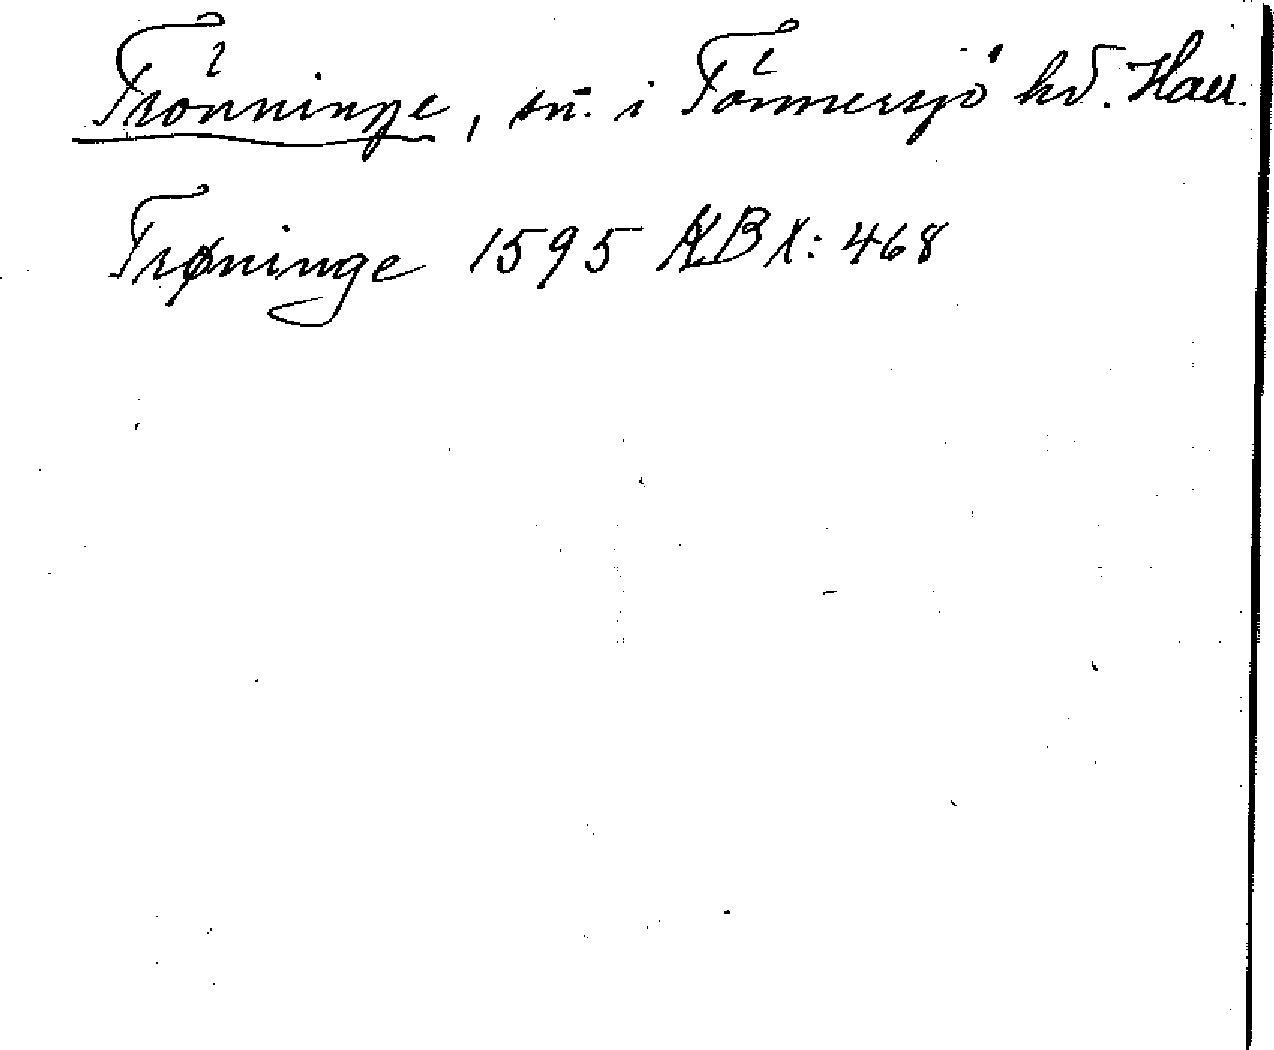 Trönninge, sn. i Tönnersjö hd. Hall.
Trøninge 1595 KB X: 468